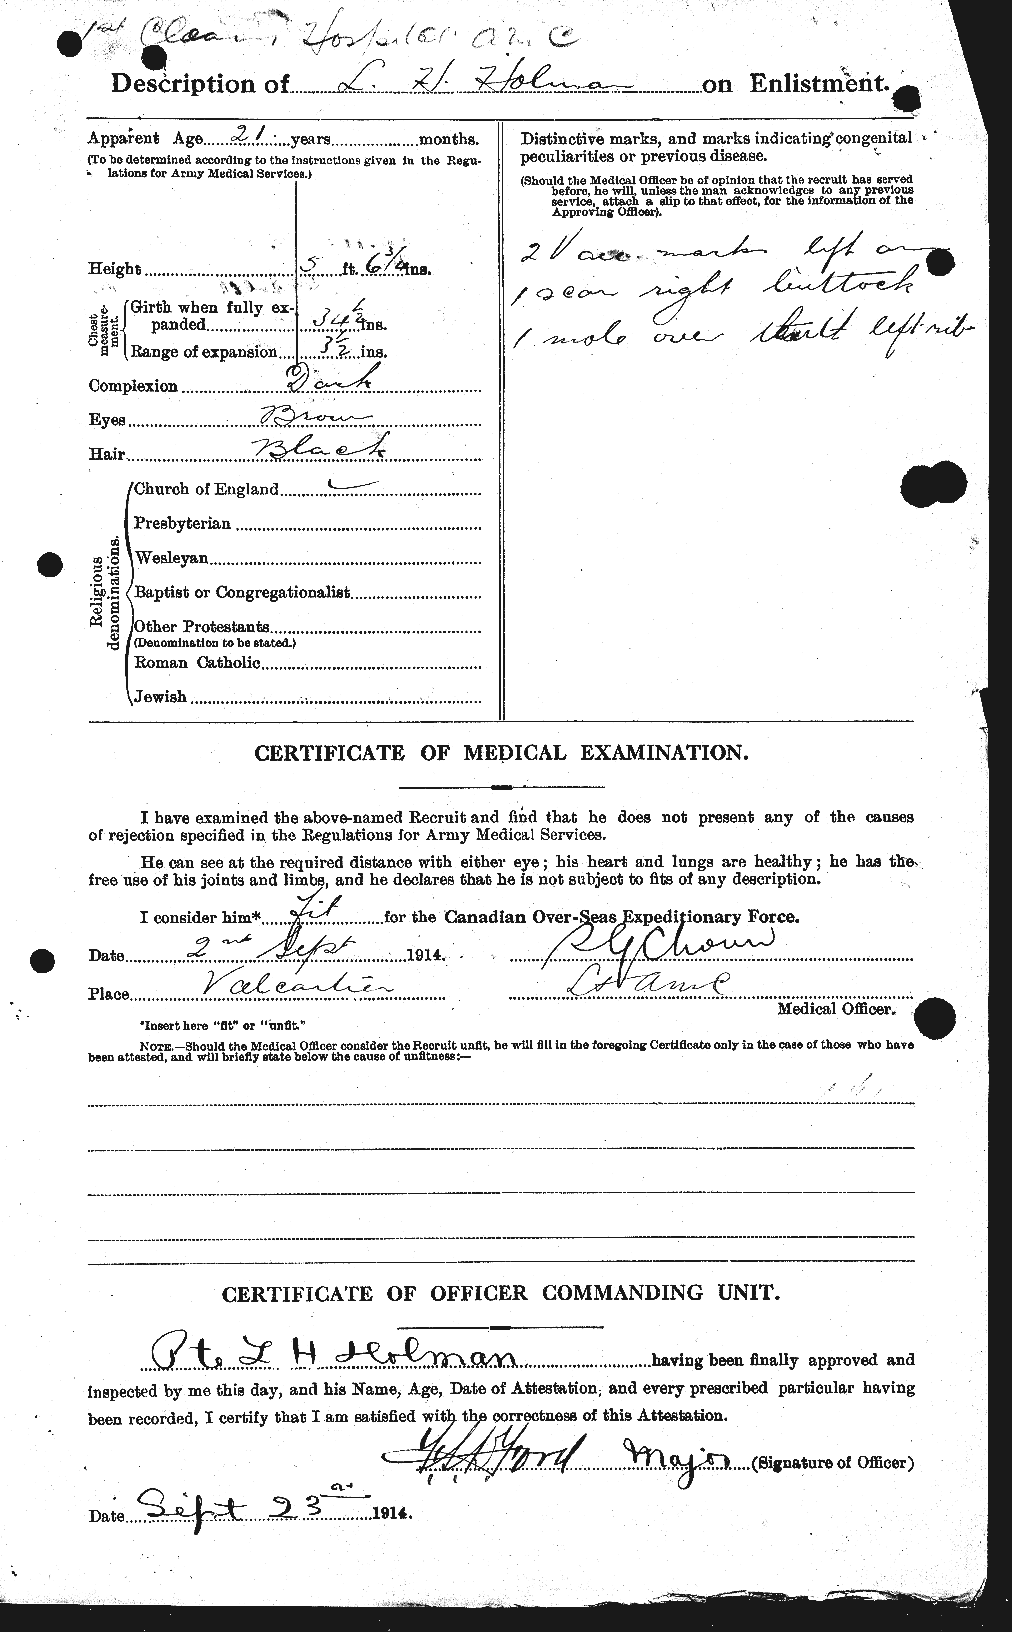 1st Clearing Hospital A.M.C
Description of L. H. Holman on Enlistment.
Apparent Age 21 years months.
(To be determined according to the instructions given in the Regu-
lations for Army Medical Services.)
Height 5 ft. 6 3/4 ins.
Chest measure-ment.
Girth when fully ex-
panded 34 1/2 ins.
Range of expansion 3 1/2 ins.
Complexion Dark
Eyes Brown
Hair Black
Religious denominations.
Church of England ✓
Presbyterian
Wesleyan
Baptist or Congregationalist
Other Protestants
(Denomination to be stated.)
Roman Catholic
Jewish
Distinctive marks, and marks indicating congenital
peculiarities or previous disease.
(Should the Medical Officer be of opinion that the recruit has served
before, he will, unless the man acknowledges to any previous
service, attach a slip to that effect, for the information of the
Approving Officer).
2 Vacc. marks left arm
1 scar right buttock
1 mole over left rib
CERTIFICATE OF MEDICAL EXAMINATION.
I have examined the above-named Recruit and find that he does not present any of the causes
of rejection specified in the Regulations for Army Medical Services.
He can see at the required distance with either eye; his heart and lungs are healthy; he has the
free use of his joints and limbs, and he declares that he is not subject to fits of any description.
I consider him* fit for the Canadian Over-Seas Expeditionary Force.
Date 2nd Sept 1914.
Place Valcartier
Lt AMC
Medical Officer.
*Insert here "fit" or "unfit."
NOTE.—Should the Medical Officer consider the Recruit unfit, he will fill in the foregoing Certificate only in the case of those who have
been attested, and will briefly state below the cause of unfitness:—
CERTIFICATE OF OFFICER COMMANDING UNIT.
Pte L H Holman having been finally approved and
inspected by me this day, and his Name, Age, Date of Attestation, and every prescribed particular having
been recorded, I certify that I am satisfied with the correctness of this Attestation.
Ford Major (Signature of Officer)
Date Sept 23rd 1914.